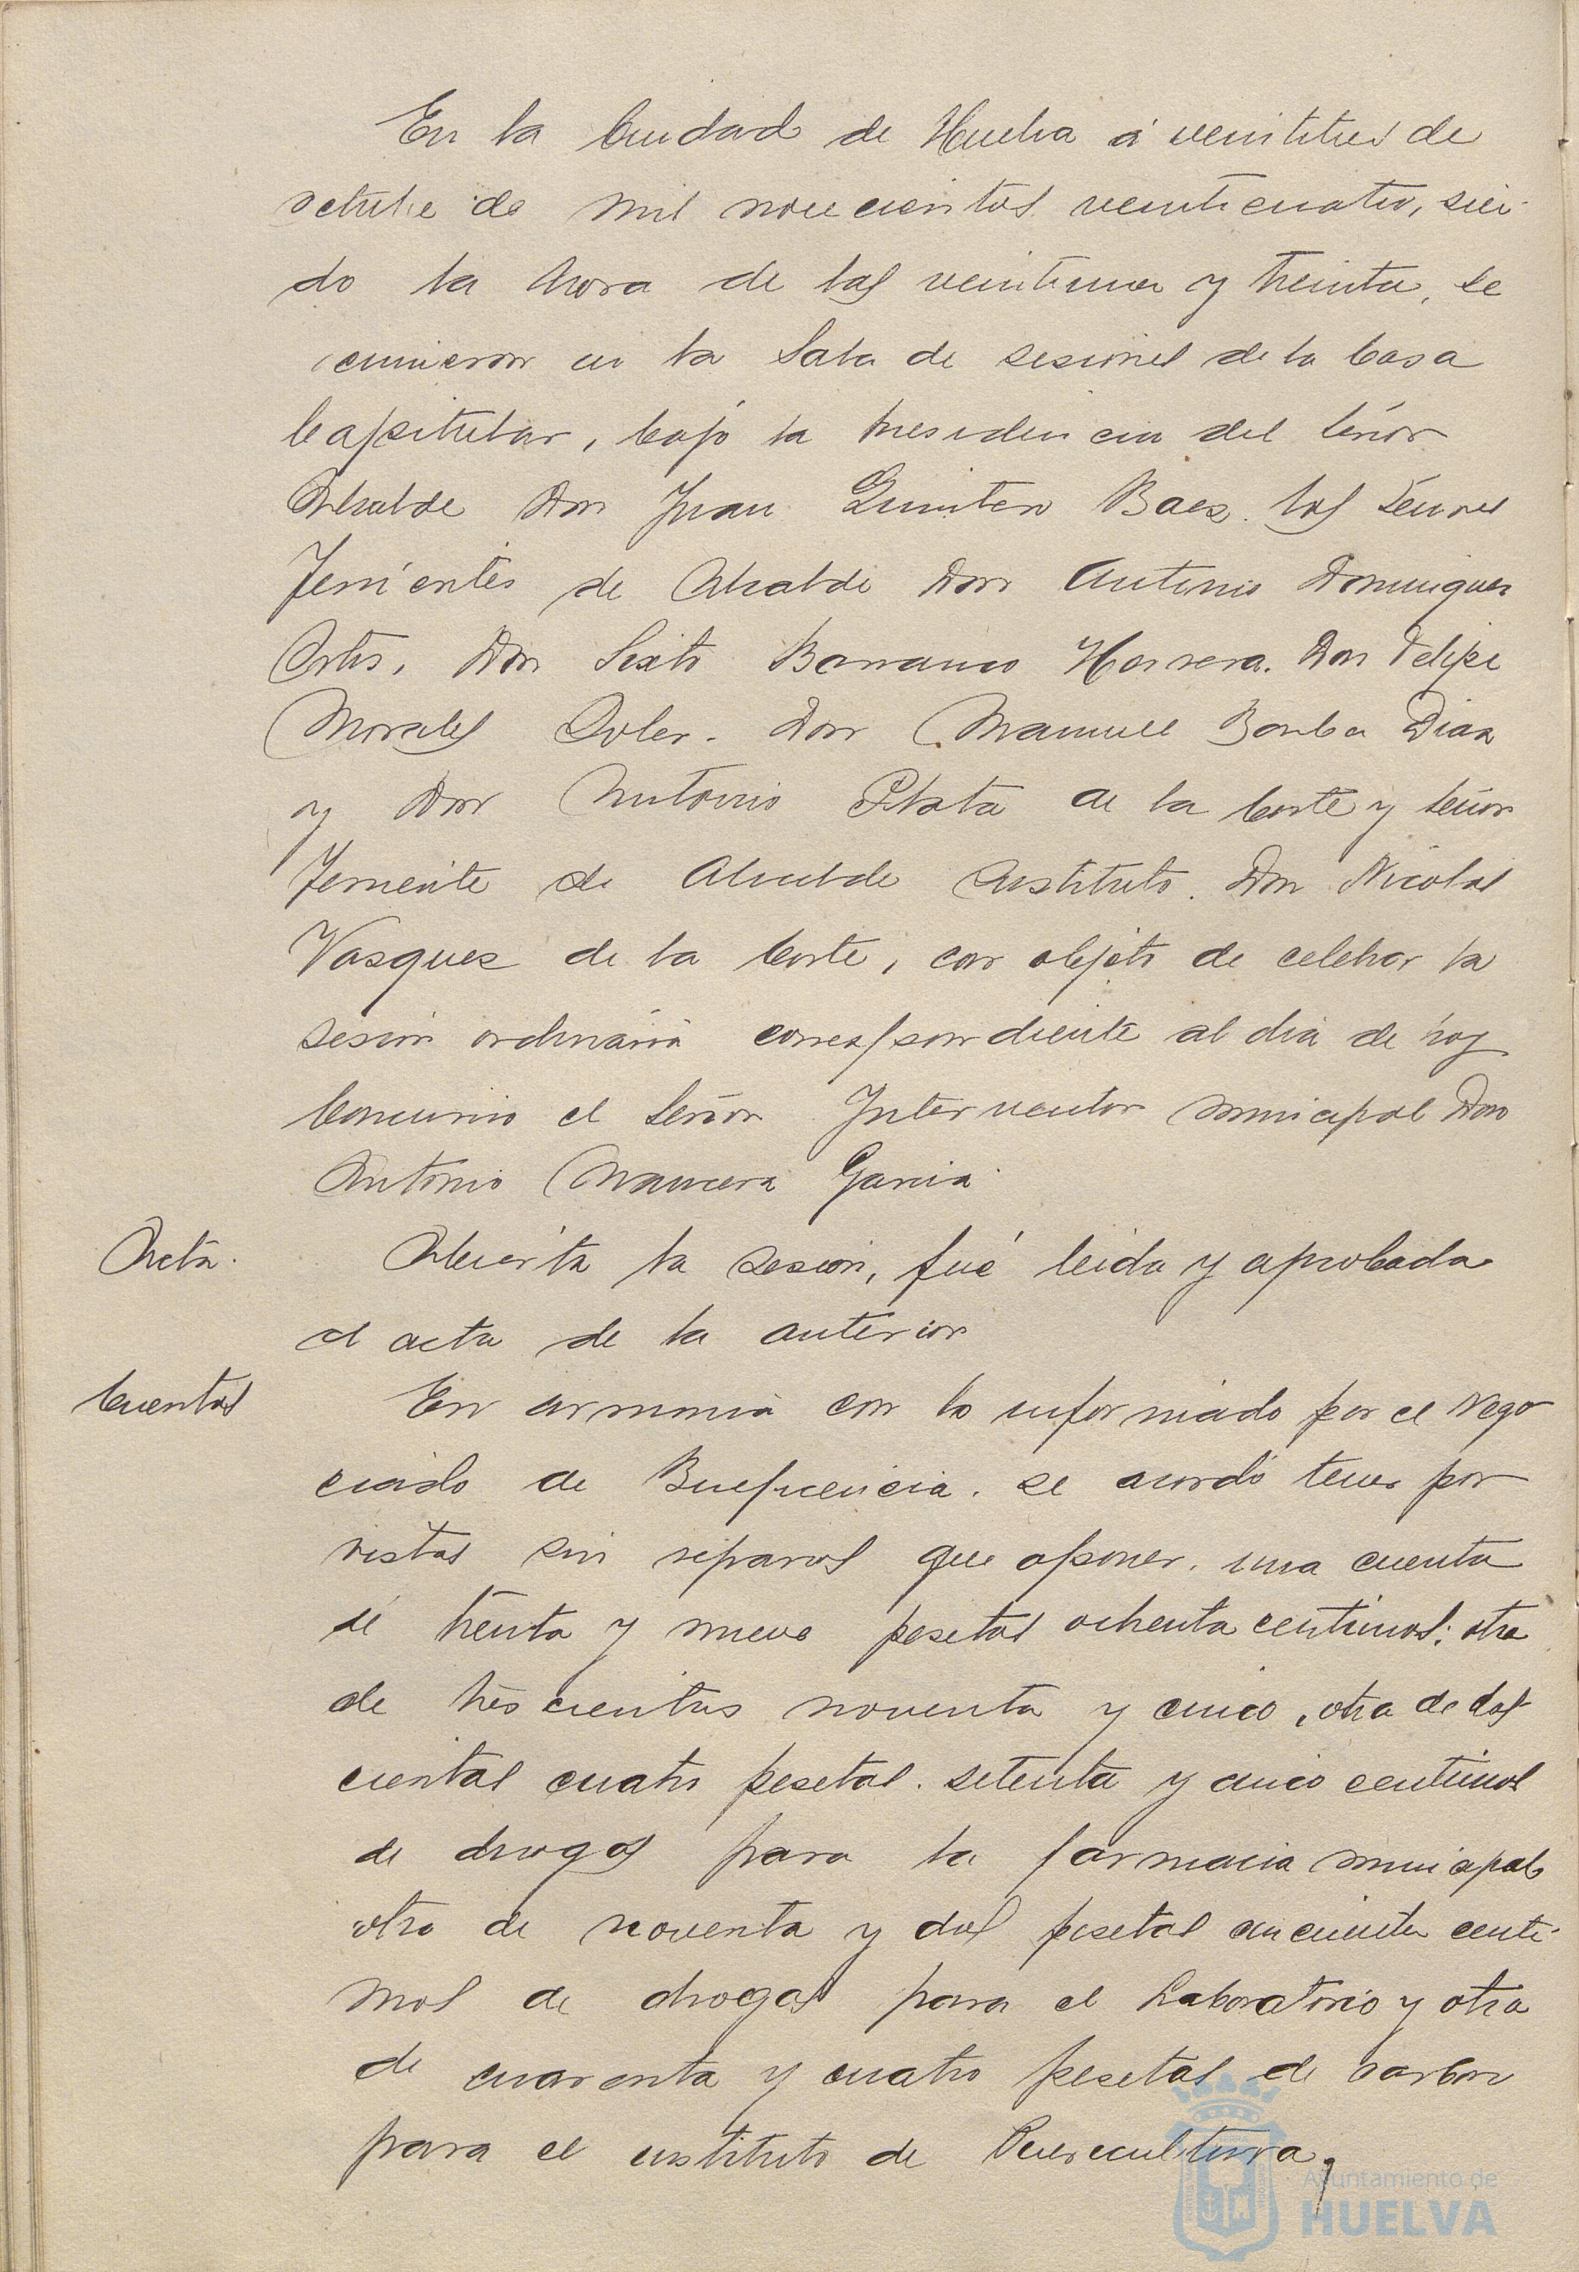 En la Ciudad de Huelva á veintitres de
octubre de mil novecientos veinticuatro, sien-
do la hora de las veintiuna y treinta, se
reunieron en la Sala de sesiones de la Casa
Capitular, bajo la presidencia del Señor
Alcalde Don Juan Quintero Baez. los Señores
Tenientes de Alcalde Don Antonio Dominguez
Ortis, Don Sixto Barranco Herrera. Don Felipe
Morales Soler. Don Manuel Borba Diaz
y Don Antonio Plata de la Corte y Señor
Teniente de Alcalde sustituto. Don Nicolas
Vasquez de la Corte, con objeto de celebrar la
sesion ordinaria correspondiente al dia de hoy
Concurrio el Señor Interventor municipal Don
Antonio Mancera Garcia.
Acta.
Abierta la sesion, fué leida y aprobada
el acta de la anterior
Cuentas
En armonia con lo informado por el Nego
ciado de Beneficencia. se acordó tener por
vistas sin reparos que oponer. una cuenta
de treinta y nueve pesetas ochenta centimos; otra
de trescientas noventa y cinco, otra de dos
cientas cuatro pesetas. setenta y cinco centimos
de drogas para la farmacia municipal
otra de noventa y dos pesetas cincuenta centi-
mos de drogas para el Laboratorio y otra
de cuarenta y cuatro pesetas de carbon
para el instituto de Puericultura.
Ayuntamiento de
HUELVA